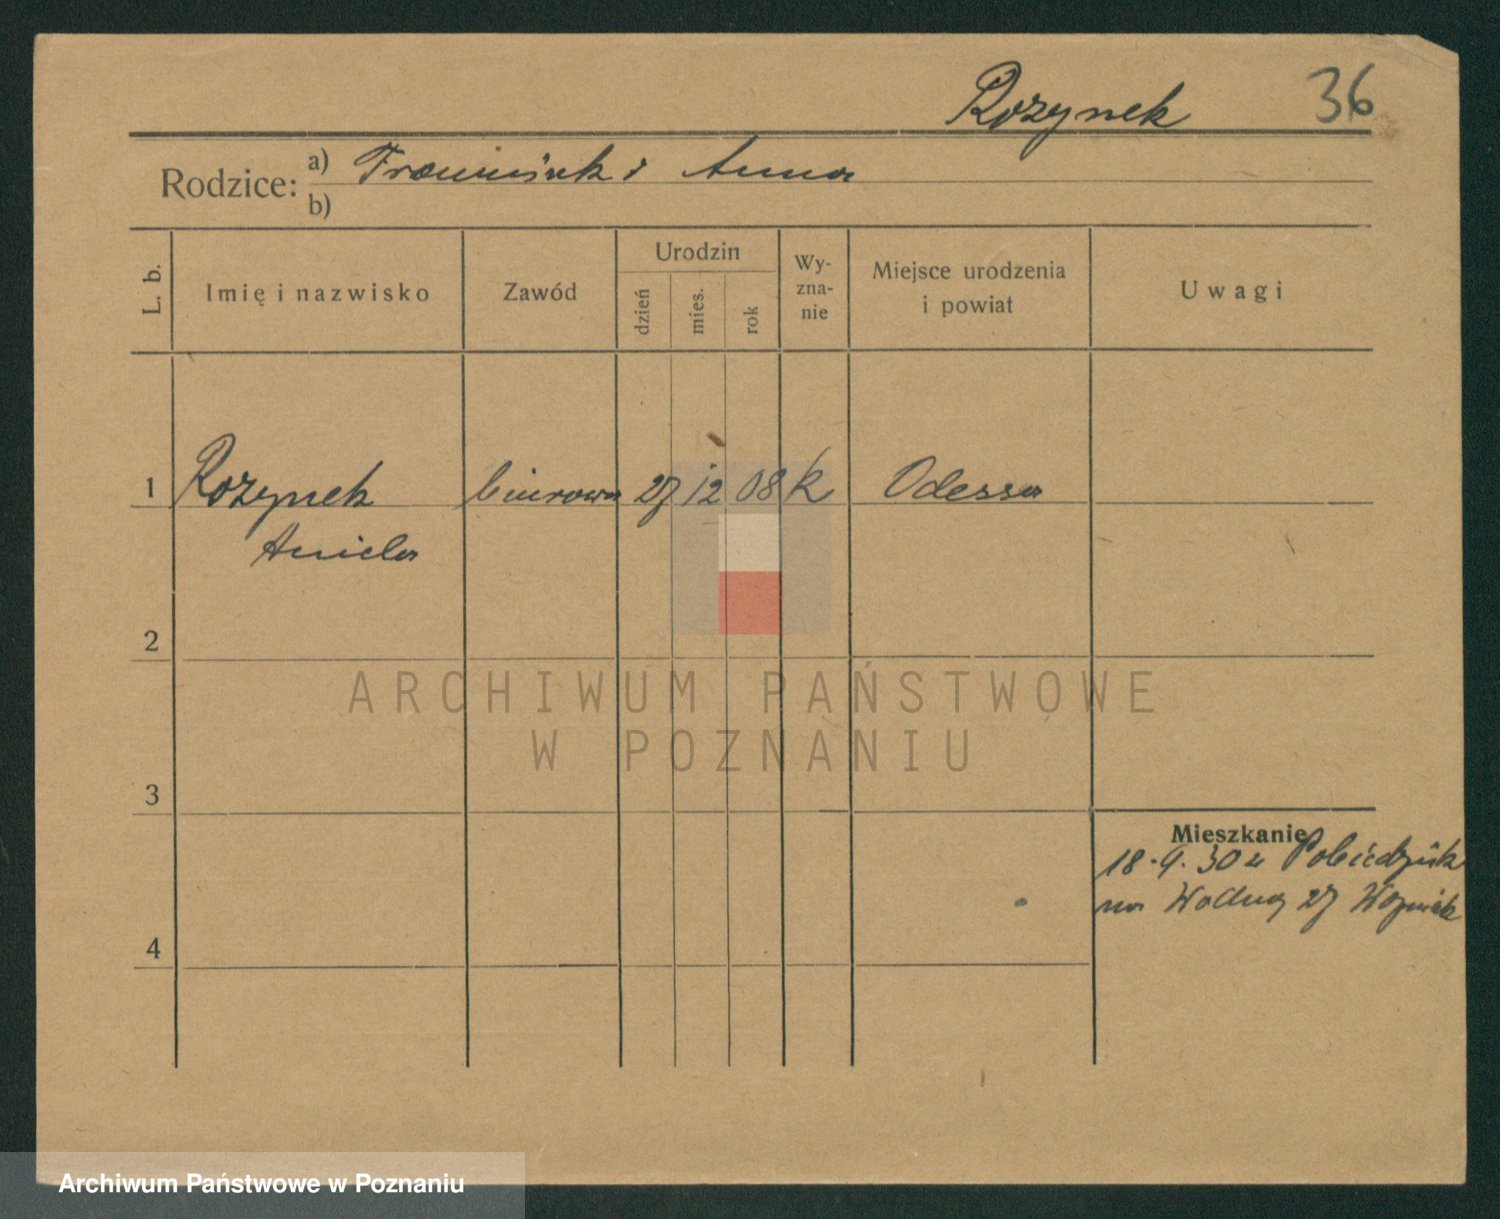 Rozynek 36
Rodzice: a) Franciszek i Anna
b)
L. b. Imię i nazwisko Zawód Urodzin dzień mies. rok Wy- zna- nie Miejsce urodzenia i powiat Uwagi
1 Rozynek biurowa 27 12 08 k Odessa
Aniela
2
ARCHIWUM PAŃSTWOWE
W POZNANIU
3
Mieszkanie
18.9.30 z Pobiedzisk
na Wodną 27 Woźniak
4
Archiwum Państwowe w Poznaniu